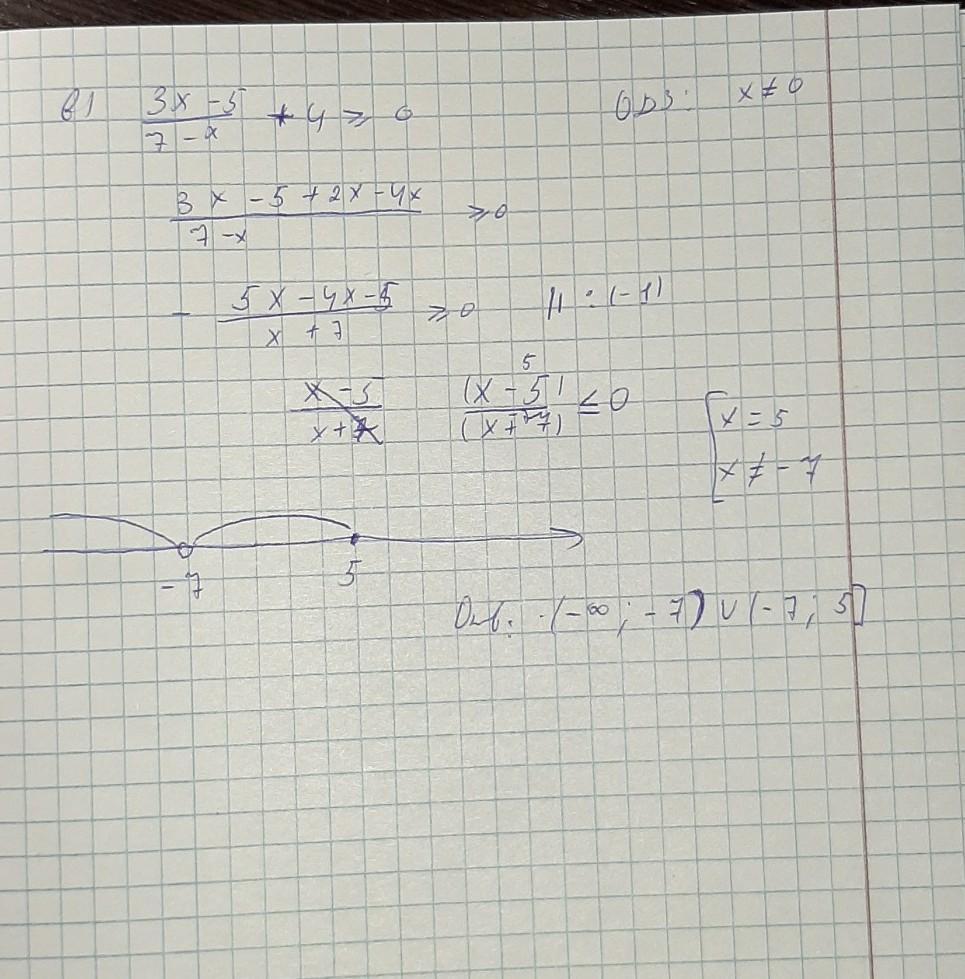 в) (3x - 5)/(7 - x) + 4 ≥ 0 ОДЗ: x ≠ 0
(3x - 5 + 2x - 4x)/(7 - x) ≥ 0
- (5x - 4x - 5)/(x + 7) ≥ 0 || : (-1)
(x - 5)/(x + 7) (x - 5)/(x + 7) ≤ 0
[ x = 5
x ≠ -7
-7 5
Отв: (-∞; -7) ∪ (-7; 5]